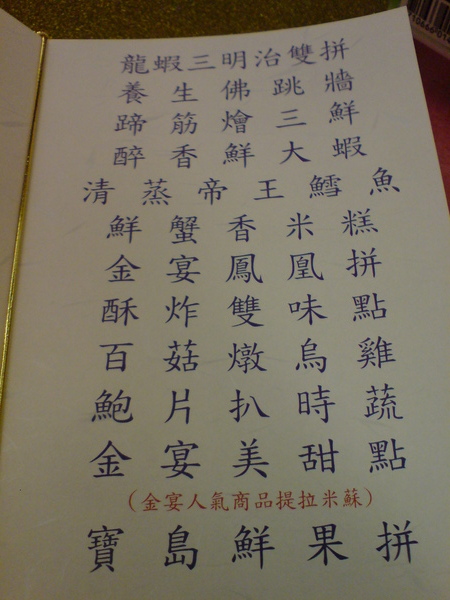 龍蝦三明治雙拼
養生佛跳牆
蹄筋燴三鮮
醉香鮮大蝦
清蒸帝王鱈魚
鮮蟹香米糕
金宴鳳凰拼
酥炸雙味點
百菇燉烏雞
鮑片扒時蔬
金宴美甜點
(金宴人氣商品提拉米蘇)
寶島鮮果拼